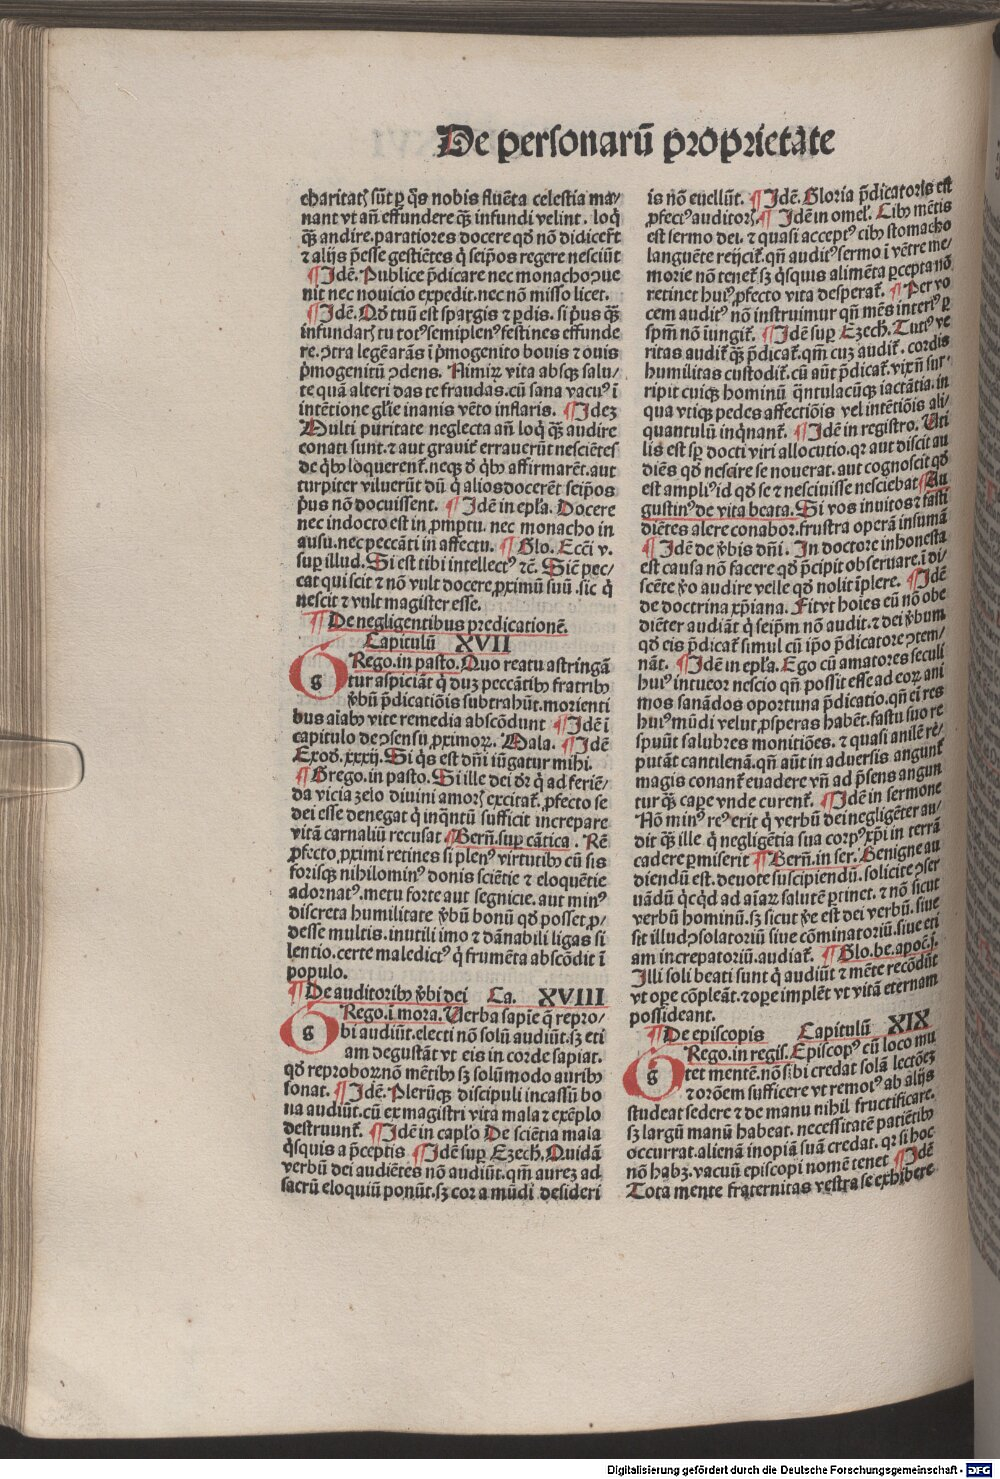 De personarū proprietate
charitatꝭ sūt ꝑ q̄s nobis fluēta celestia ma⸗
nant vt an̄ effundere q̄ꝫ infundi velint. loq̇
q̄ꝫ audire. paratiores docere qd̛ nō didicer̄t
⁊ alijs p̄esse gestiētes q̇ seip̄os regere nesciūt
¶ Idē. Publice p̄dicare nec monacho ꝯue
nit nec nouicio expedit. nec nō misso licet.
¶ Idē. Qd̛ tuū est spargis ⁊ ꝑdis. si p̄us q̄ꝫ
infundarꝭ tu totꝰ semiplenꝰ festines effunde
re. ꝯtra legē arās ī p̄mogenito bouis ⁊ ouis
p̄mogenitū ꝯdens. Nimiꝝ vita absqꝫ salu⸗
te quā alteri das te fraudas. cū sana vacuꝰ ī
intētione gl̄ie inanis vēto inflaris. ¶ Ideꝫ
Multi puritate neglecta an̄ loq̇ q̄ꝫ audire
conati sunt. ⁊ aut grauit̄ errauerūt nesciētes
de q̇bꝰ loquerent̄. neqꝫ d̛ q̇bꝰ affirmarēt. aut
turpiter viluerūt dū q̇ alios docerēt seip̄os
p̄us nō docuissent. ¶ Idē in ep̄la. Docere
nec indocto est in ꝓmptu. nec monacho in
ausu. nec peccāti in affectu. ¶ Glo. Ecc̄i v.
suꝑ illud. Si est tibi intellectꝰ ⁊c̄. Sic̄ pec⸗
cat qui scit ⁊ nō vult docere ꝓximū suū. sic q̇
nescit ⁊ vult magister esse.
¶ De negligentibus predicationē.
Capitulū XVII
GRego. in pasto. Quo reatu astringā
tur aspiciāt q̇ duꝫ peccātibꝰ fratribꝰ
v̄bū p̄dicatiōis subtrahūt. morienti
bus aīabꝰ vite remedia abscōdunt ¶ Idē ī
capitulo de ꝯsensu ꝓximoꝝ. Mala. ¶ Idē
Exod̛. xxxij. Si q̇s est dn̄i iūgatur mihi.
¶ Grego. in pasto. Si ille dei dr̄ q̇ ad feriē⸗
da vicia zelo diuini amorꝭ excitat̄. ꝓfecto se
dei esse denegat q̇ inq̄ntū sufficit increpare
vitā carnaliū recusat ¶ Bern̄. suꝑ cātica. Rē
ꝓfecto ꝓximi retines si plenꝰ virtutibꝰ cū sis
forisqꝫ nihilominꝰ donis sciētie ⁊ eloquētie
adornatꝰ. metu forte aut segnicie. aut minꝰ
discreta humilitate v̄bū bonū qd̛ posset ꝓ⸗
desse multis. inutili imo ⁊ dānabili ligas si
lentio. certe maledictꝰ q̇ frumēta abscōdit ī
populo.
¶ De auditoribꝰ v̄bi dei Ca. XVIII
GRego. ī mora. Uerba sapīe q̄ repro⸗
bi audiūt. electi nō solū audiūt. sꝫ eti
am degustāt vt eis in corde sapiat.
qd̛ reproboꝝ nō mētibꝰ sꝫ solūmodo auribꝰ
sonat. ¶ Idē. Plerūqꝫ discipuli incassū bo
na audiūt. cū ex magistri vita mala ⁊ exēplo
destruunt̄. ¶ Idē in cap̄lo De sciētia mala
q̇squis a p̄ceptis ¶ Idē suꝑ Ezech̄. Quidā
verbū dei audiētes nō audiūt. qm̄ aureꝫ ad
sacrū eloquiū ponūt. sꝫ cor a mūdi desideri
is nō euellūt. ¶ Idē. Gloria p̄dicatorꝭ est
ꝓfectꝰ auditorꝭ. ¶ Idē in omel̄. Cibꝰ mētis
est sermo dei. ⁊ quasi acceptꝰ cibꝰ stomacho
languēte reijcit̄. qn̄ auditꝰ sermo ī vētre me⸗
morie nō tenet̄ sꝫ q̇squis alimēta ꝑcepta nō
retinet huiꝰ ꝓfecto vita desperat̄. ¶ Per vo
cem auditꝰ nō instruimur qn̄ mēs interiꝰ ꝑ
sp̄m nō īungit̄. ¶ Idē suꝑ Ezech̄. Tutiꝰ ve
ritas audit̄ q̄ꝫ p̄dicat̄. qm̄ cuꝫ audit̄. cordis
humilitas custodit̄. cū aūt p̄dicat̄. vix nō sur⸗
ripit cuiqꝫ hominū q̄ntulacūqꝫ iactātia. in
qua vtiqꝫ pedes affectiōis vel intētiōis ali⸗
quantulū inq̇nant̄. ¶ Idē in registro. Uti
lis est sꝑ docti viri allocutio. qꝛ aut discit au
diēs qd̛ nescire se nouerat. aut cognoscit qd̛
est ampliꝰ id qd̛ se ⁊ nesciuisse nesciebat ¶ Au
gustinꝰ de vita beata. Si vos inuitos ⁊ fasti
diētes alere conabor. frustra operā insumā
¶ Idē de v̄bis dn̄i. In doctore inhonesta
est causa nō facere qd̛ p̄cipit obseruare. ī di⸗
scēte v̄o audire velle qd̛ nolit īplere. ¶ Idē
de doctrina xp̄iana. Fit vt hoīes eū nō obe
diēter audiāt q̇ seip̄m nō audit. ⁊ dei v̄bum
qd̛ eis p̄dicat̄ simul cū ip̄o p̄dicatore ꝯtem⸗
nāt. ¶ Idē in ep̄la. Ego cū amatores seculi
huiꝰ intueor nescio qn̄ possit esse ad eoꝝ ani
mos sanādos oportuna p̄dicatio. qn̄ ei res
huiꝰ mūdi velut ꝓsperas habēt. fastu suo re
spuūt salubres monitiōes. ⁊ quasi anilē re⸗
putāt cantilenā. qn̄ aūt in aduersis angunt̄
magis conant̄ euadere vn̄ ad p̄sens angun
tur q̄ꝫ capere vnde curent̄. ¶ Idē in sermone
Nō minꝰ reꝰ erit q̇ verbū dei negligēter au⸗
dit q̄ꝫ ille q̇ negligētia sua corpꝰ xp̄i in terrā
cadere ꝑmiserit ¶ Bern̄. in ser. Benigne au
diendū est. deuote suscipiendū. solicite ꝯser
uādū q̇cq̇d ad aīaꝝ salutē ꝑtinet. ⁊ nō sicut
verbū hominū. sꝫ sicut v̄e est dei verbū. siue
sit illud ꝯsolatoriū siue cōminatoriū. siue eti
am increpatoriū. audiat̄. ¶ Glo. be. apoc̄. j.
Illi soli beati sunt q̇ audiūt ⁊ mēte recōdūt
vt oꝑe cōpleāt. ⁊ oꝑe implēt vt vitā eternam
possideant.
¶ De episcopis Capitulū XIX
GRego. in regis. Episcopꝰ cū loco mu
tet mentē. nō sibi credat solā lectōeꝫ
⁊ orōem sufficere vt remotꝰ ab alijs
studeat sedere ⁊ de manu nihil fructificare.
sꝫ largū manū habeat. necessitatē patiētibꝰ
occurrat. alienā inopiā suā credat. qꝛ si hoc
nō habꝫ. vacuū episcopi nomē tenet ¶ Idē
Tota mente fraternitas vestra se exhibere
Digitalisierung gefördert durch die Deutsche Forschungsgemeinschaft - DFG